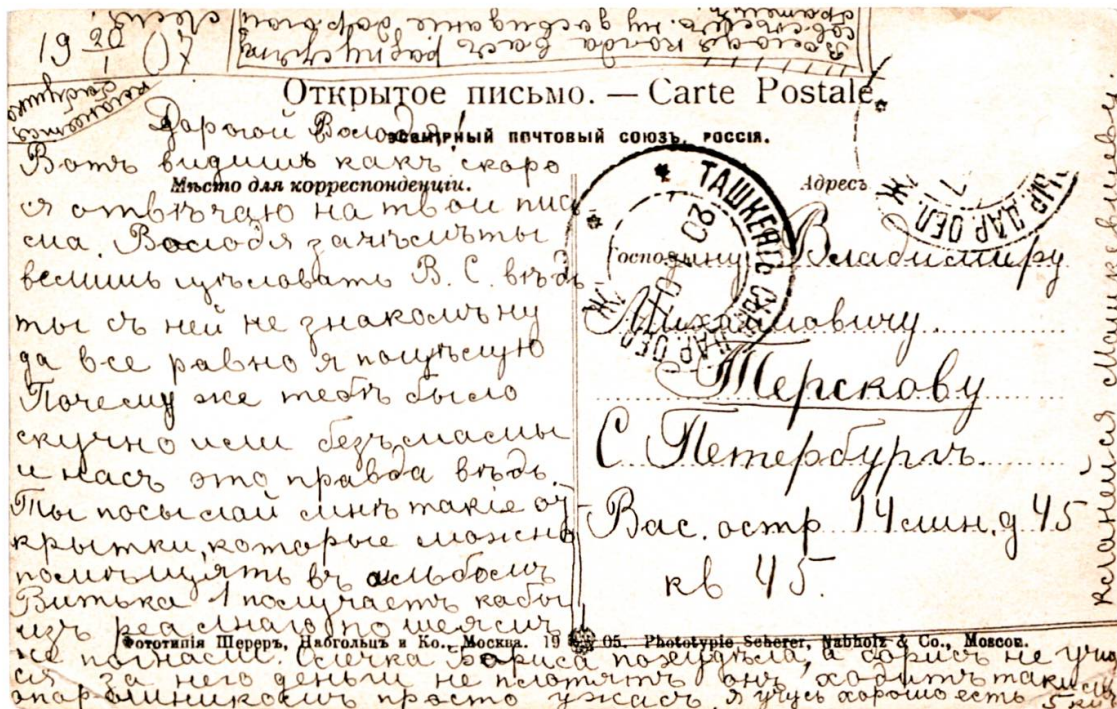 19 20/1 07
Володя когда васъ распустятъ
совсѣмъ. ну досвиданiе дорогой
братецъ
кланяется
бабушка
Открытое письмо. — Carte Postale.
ВСЕМІРНЫЙ ПОЧТОВЫЙ СОЮЗЪ, РОССІЯ.
Мѣсто для корреспонденціи.
Адресъ
Дорогой Володя!
Вотъ видишь какъ скоро
я отвѣчаю на твои пись
ма. Володя зачѣмъ ты
велишь цѣловать В. С. вѣдь
ты съ ней не знакомъ ну
да все равно я поцѣлую
Почему же тебѣ было
скучно или безъ мамы
и насъ это правда вѣдь.
Ты посылай мнѣ такіе от
крытки, которые можно
помѣщять въ альбомъ
Витька 1 получаетъ кабы
изъ реальнаго по шеямъ
не погнали. Осичка Бориса похудѣла, а борисъ не учи
ся за него деньги не плотятъ онъ ходитъ такимъ
опорлишникомъ просто ужасъ. Я учусь хорошо есть 5ки
ТАШКЕНТЪ СЫР. ДАР. ОБЛ.
20
ЫР. ДАР. ОБЛ.
Господину Владимиру
Михайловичу
Терскову
С Петербургъ.
Вас. остр 14 лин. д 45
кв 45.
кланейся
Фототипія Шереръ, Набгольцъ и Ко., Москва. 19 05. Phototypie Scherer, Nabholz & Co., Moscou.